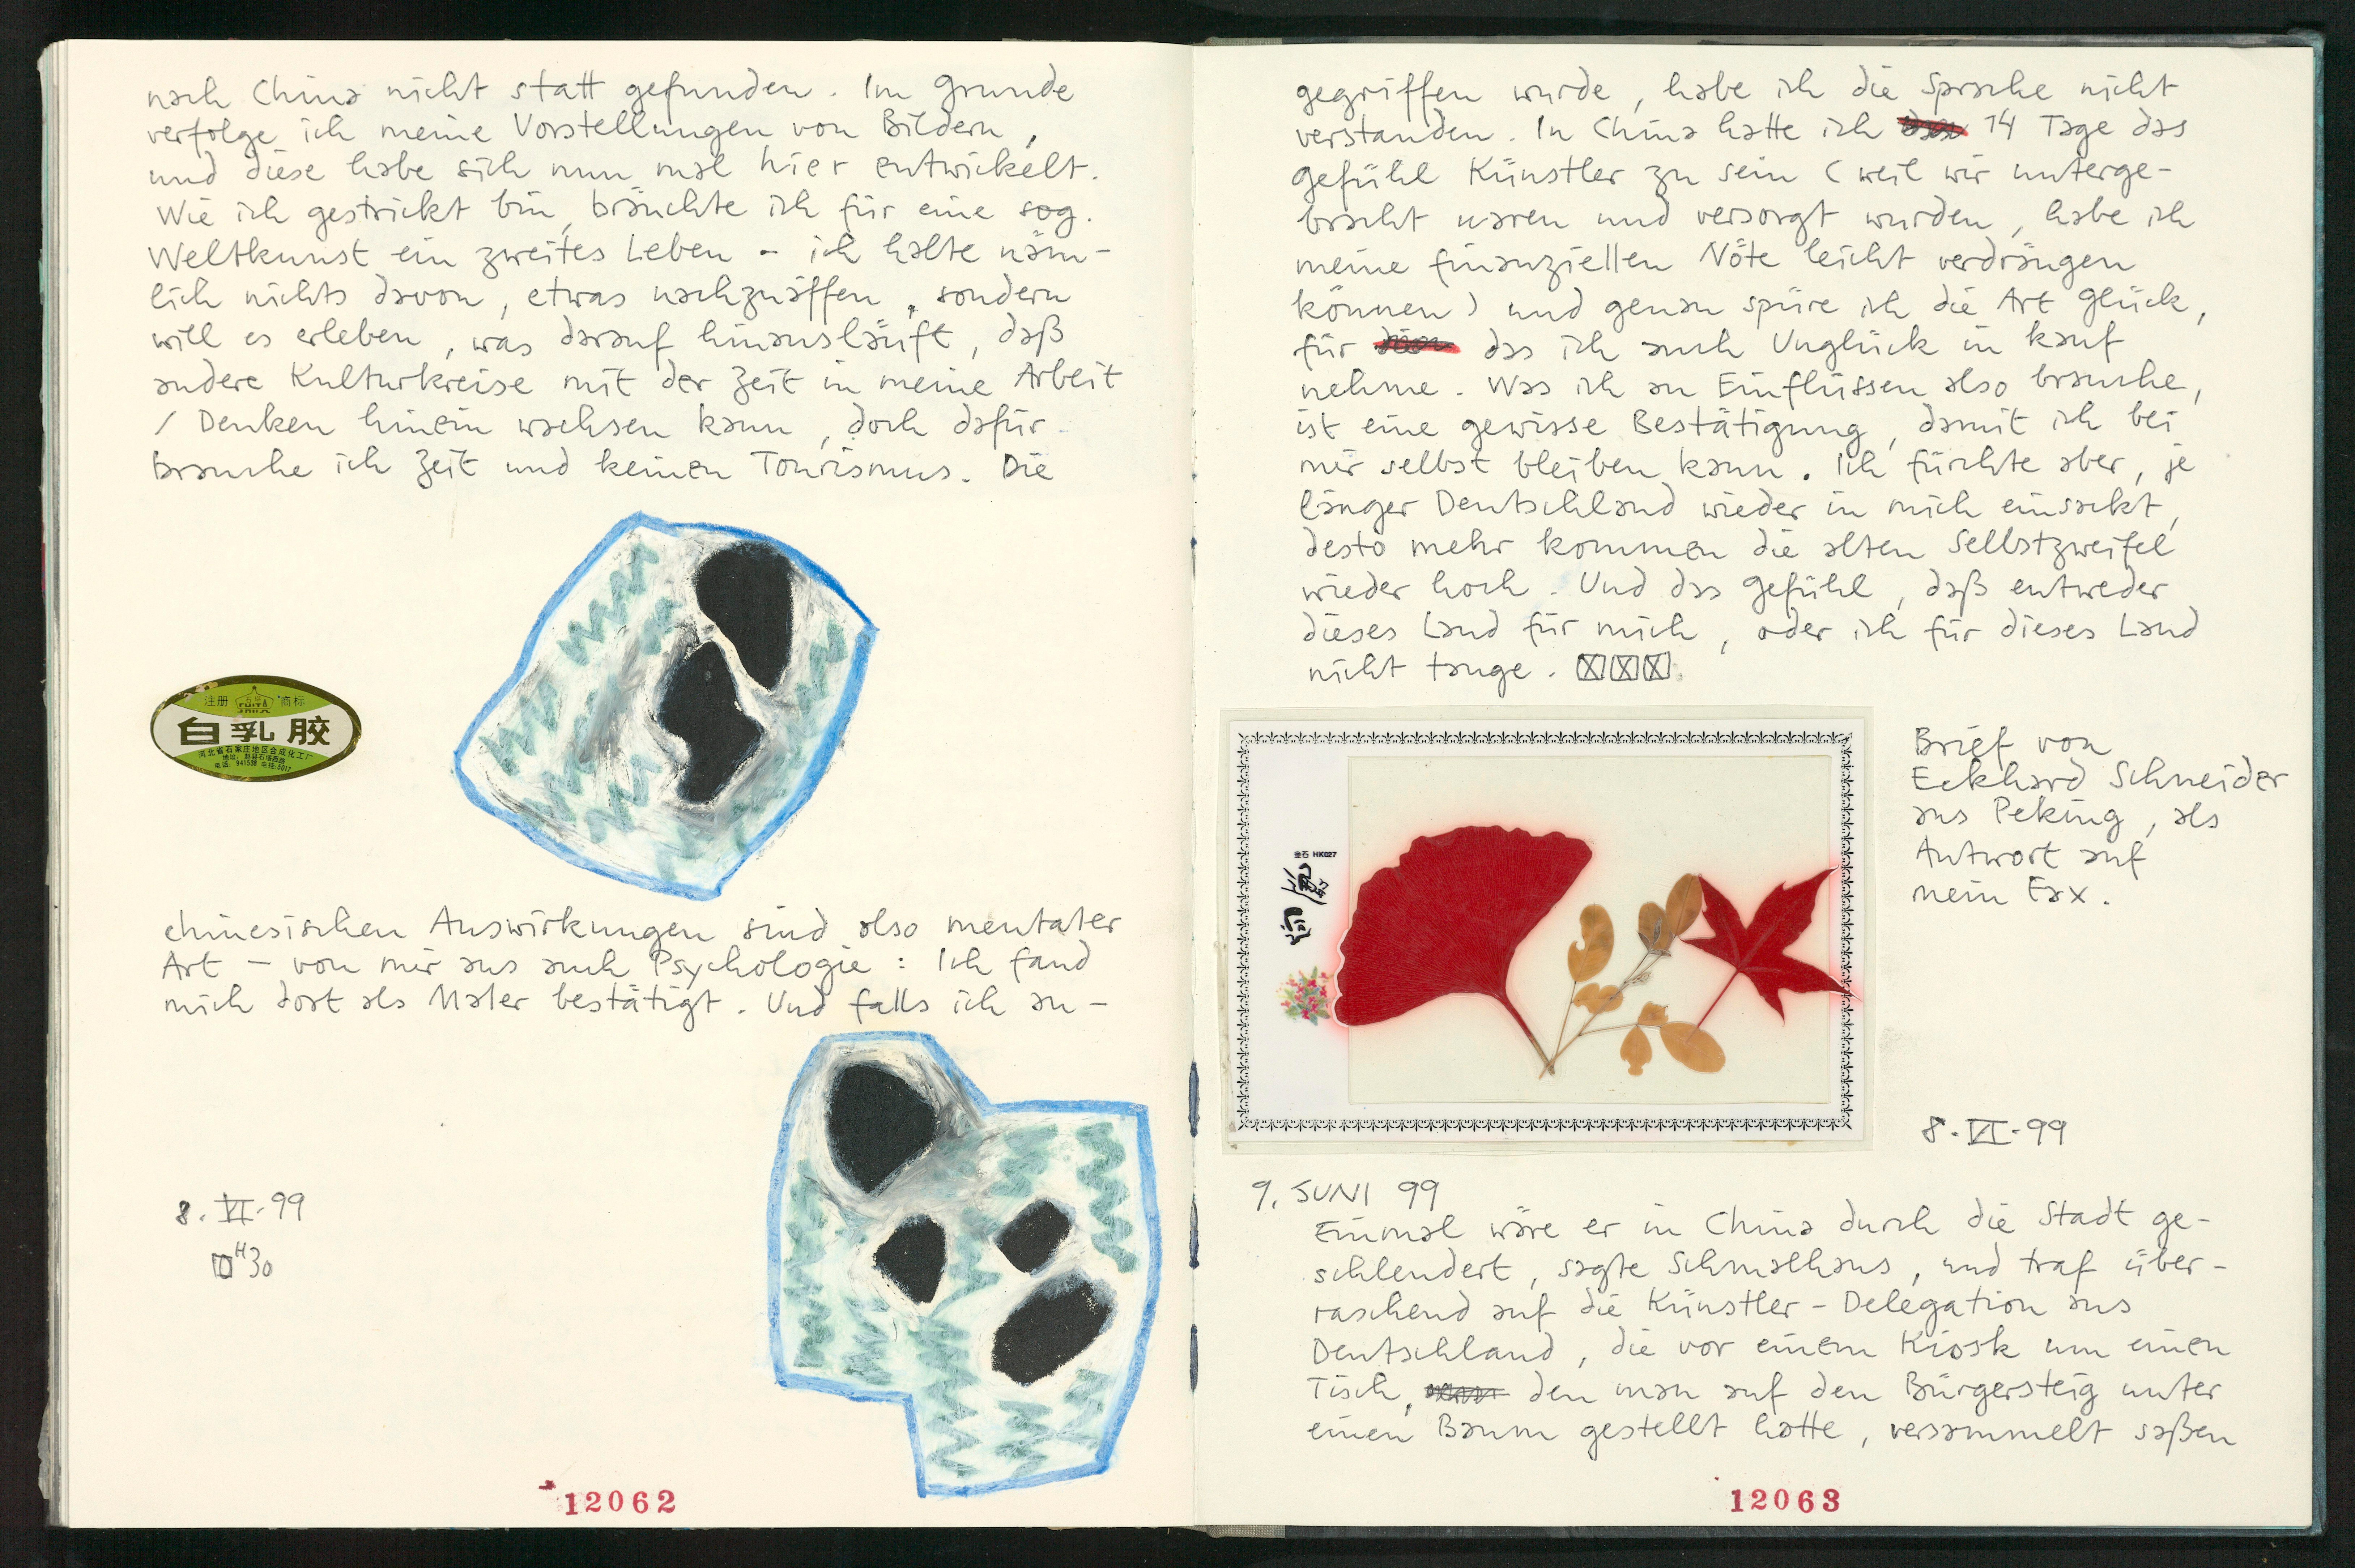 nach China nicht statt gefunden. Im Grunde
verfolge ich meine Vorstellungen von Bildern,
und diese habe sich nun mal hier entwickelt.
Wie ich gestrickt bin, bräuchte ich für eine sog.
Weltkunst ein zweites Leben - ich halte näm-
lich nichts davon, etwas nachzuäffen, sondern
will es erleben, was darauf hinausläuft, daß
andere Kulturkreise mit der Zeit in meine Arbeit
/ Denken hinein wachsen kann, doch dafür
brauche ich Zeit und keinen Tourismus. Die
注册 商标
白乳胶
河北省石家庄地区合成化工厂
chinesischen Auswirkungen sind also mentaler
Art – von mir aus auch Psychologie: Ich fand
mich dort als Maler bestätigt. Und falls ich an-
8. VI. 99
H30
12062
gegriffen wurde, habe ich die Sprache nicht
verstanden. In China hatte ich 14 Tage das
Gefühl Künstler zu sein (weil wir unterge-
bracht waren und versorgt wurden, habe ich
meine finanziellen Nöte leicht verdrängen
können) und genau spüre ich die Art Glück,
für das ich auch Unglück in kauf
nehme. Was ich an Einflüssen also brauche,
ist eine gewisse Bestätigung, damit ich bei
mir selbst bleiben kann. Ich fürchte aber, je
länger Deutschland wieder in mich einsackt,
desto mehr kommen die alten Selbstzweifel
wieder hoch. Und das Gefühl, daß entweder
dieses Land für mich, oder ich für dieses Land
nicht tauge.
金石 HK027
Brief von
Eckhard Schneider
aus Peking, als
Antwort auf
mein Fax.
8. VI. 99
9. JUNI 99
Einmal wäre er in China durch die Stadt ge-
schlendert, sagte Schmalhaus, und traf über-
raschend auf die Künstler-Delegation aus
Deutschland, die vor einem Kiosk um einen
Tisch, den man auf den Bürgersteig unter
einen Baum gestellt hatte, versammelt saßen
12063